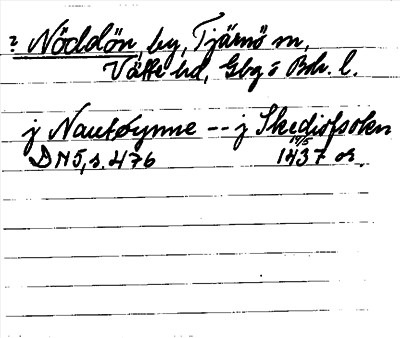 ? Nöddön, by, Tjärnö sn,
Vätte hd, Gbg o Boh. l.
j Nautøynne -- j Skediofsokn
DN5, s. 476 19/5 1437 or.